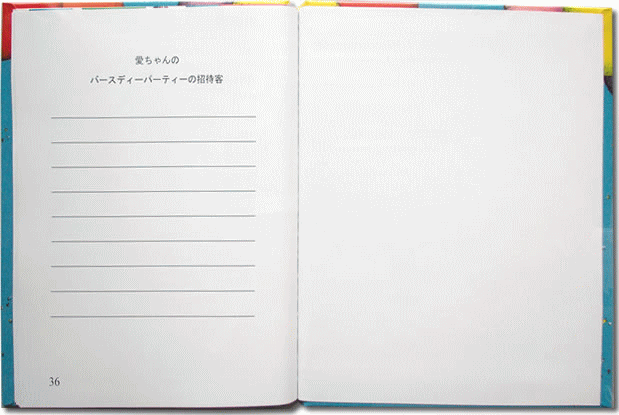 愛ちゃんの
バースディーパーティーの招待客
36